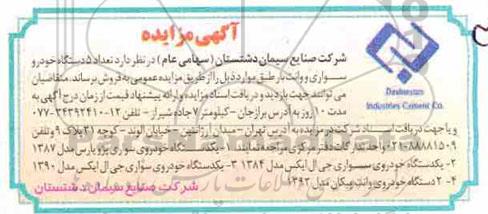 آگهی مزایده
شرکت صنایع سیمان دشتستان (سهامی عام) در نظر دارد تعداد ۵ دستگاه خودرو
سواری و وانت بار طبق موارد ذیل را از طریق مزایده عمومی به فروش برساند، متقاضیان
می توانند جهت بازدید و دریافت اسناد مزایده و ارائه پیشنهاد قیمت از زمان درج آگهی به
مدت ۱۰ روز به آدرس برازجان - کیلومتر ۷ جاده شیراز - تلفن ۱۲-۳۴۳۹۲۴۱۰-۰۷۷
Dashtestan
Industries Cement Co.
و یا جهت دریافت اسناد شرکت در مزایده به آدرس تهران - میدان آرژانتین - خیابان الوند - کوچه ۳۱ پلاک ۹ و تلفن
۸۸۸۸۱۵۰۹-۰۲۱ واحد تدارکات دفتر مرکزی مراجعه نمایند. ۱- یکدستگاه خودروی سواری پژو پارس مدل ۱۳۸۷
۲- یکدستگاه خودروی سواری جی ال ایکس مدل ۱۳۸۴ ۳- یکدستگاه خودروی سواری جی ال ایکس مدل ۱۳۹۰
۴- ۲ دستگاه خودروی وانت پیکان مدل ۱۳۹۲
شرکت صنایع سیمان دشتستان